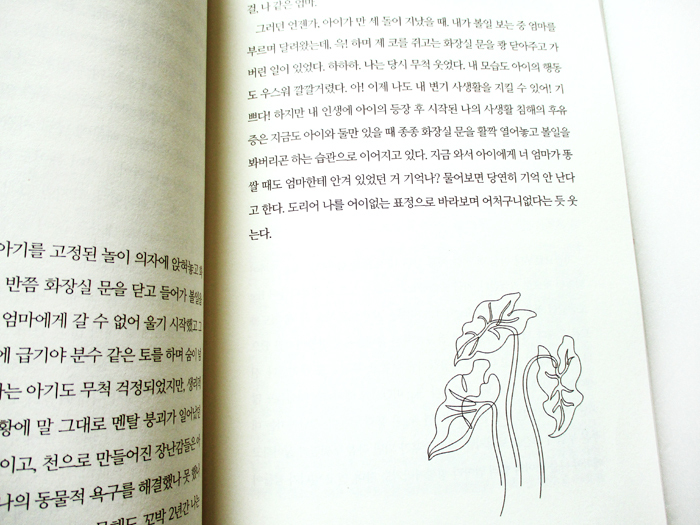 아기를 고정된 놀이 의자에 앉혀놓고
반쯤 화장실 문을 닫고 들어가 볼일을
엄마에게 갈 수 없어 울기 시작했고 그
에 급기야 분수 같은 토를 하며 숨이
나는 아기도 무척 걱정되었지만, 생리적
황에 말 그대로 멘탈 붕괴가 일어났던
이고, 천으로 만들어진 장난감들은
나의 동물적 욕구를 해결했나 못 했나
꼬박 2년간 나는
걸, 나 같은 엄마.
그러던 언젠가, 아이가 만 세 돌이 지났을 때, 내가 볼일 보는 중 엄마를
부르며 달려왔는데, 윽! 하며 제 코를 쥐고는 화장실 문을 쾅 닫아주고 가
버린 일이 있었다. 하하하. 나는 당시 무척 웃었다. 내 모습도 아이의 행동
도 우스워 깔깔거렸다. 아! 이제 나도 내 변기 사생활을 지킬 수 있어! 기
쁘다! 하지만 내 인생에 아이의 등장 후 시작된 나의 사생활 침해의 후유
증은 지금도 아이와 둘만 있을 때 종종 화장실 문을 활짝 열어놓고 볼일을
봐버리곤 하는 습관으로 이어지고 있다. 지금 와서 아이에게 너 엄마가 똥
쌀 때도 엄마한테 안겨 있었던 거 기억나? 물어보면 당연히 기억 안 난다
고 한다. 도리어 나를 어이없는 표정으로 바라보며 어처구니없다는 듯 웃
는다.